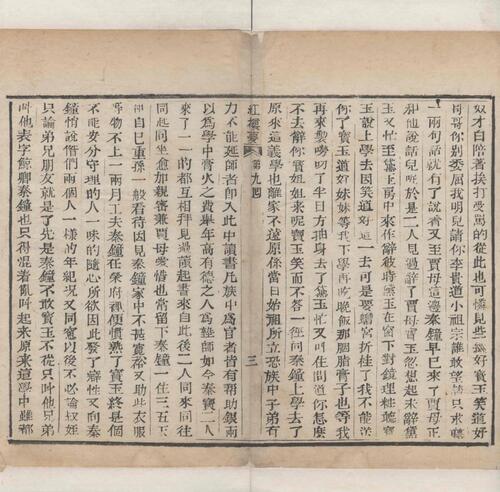 奴才白陪着挨打受罵的從此也可憐見些纔好寳玉笑道好
哥哥你別委屈我明兒請你李貴道小祖宗誰敢望請只求聽
一兩句話就有了說着又至賈母這邊秦鐘早已來了賈母正
和他說話兒呢於是二人見過辭了賈母寳玉忽想起未辭黛
玉又忙至黛玉房中來作辭彼時黛玉在窗下對鏡理粧聽寳
玉說上學去因笑道好這一去可是要蟾宮折桂了我不能送
你了寳玉道好妹妹等我下學再吃晚飯那胭脂膏子也等我
再來製嘮叨了半日方抽身去了黛玉忙又叫住問道你怎麼
不去辭你寳姐姐來呢寳玉笑而不答一徑同秦鐘上學去了
原來這義學也離家不遠原係當日始祖所立恐族中子弟有
紅樓夢 第九囘 三
力不能延師者卽入此中讀書凡族中爲官者皆有帮助銀兩
以爲學中膏火之費舉年高有德之人爲塾師如今秦寳二人
來了一一的都互相拜見過讀起書來自此後二人同來同往
同起同坐愈加親密兼賈母愛惜也常留下秦鐘一住三五天
和自己重孫一般看待因見秦鐘家中不甚寬裕又助些衣服
等物不上一兩月工夫秦鐘在榮府裡便慣熟了寳玉終是個
不能安分守理的人一味的隨心所欲因此發了癖性又向秦
鐘悄說偺們兩個人一樣的年紀况又同窗以後不必論叔姪
只論弟兄朋友就是了先是秦鐘不敢寳玉不從只叫他兄弟
叫他表字鯨卿秦鐘也只得混着亂叫起來原來這學中雖都